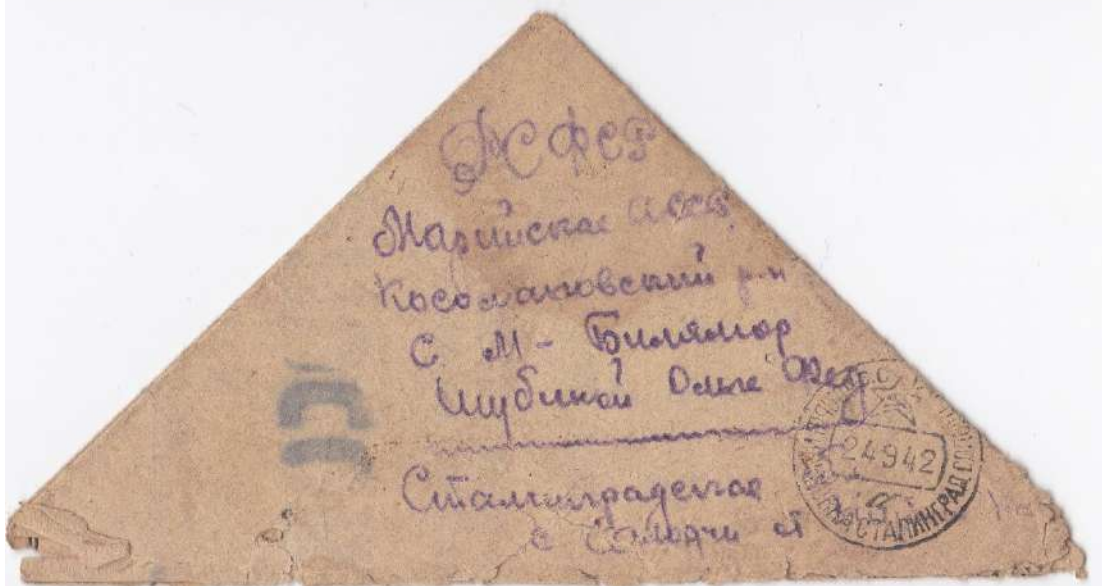 РСФСР
Марийская АССР
Косолаповский р-н
С М-Билямор
Шубиной Ольге Фед
Сталинградская
с Солодчи от
24942
СТАЛИНГРАД